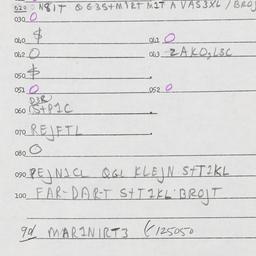 020 N8IT Q G3S+M1RT M1T A VAS3XL / BROJ
030 O
040 $ 041 O
042 O 043 ZAKO,LSC
050 $
051 O 052 O
060 S+P1C
070 REJFTL
080 O
090 PEJN1CL QGL KLEJN S+T1KL
100 FAR-DAR-T S+T1KL·BROJT
9d MAR1N1RT3 (125050